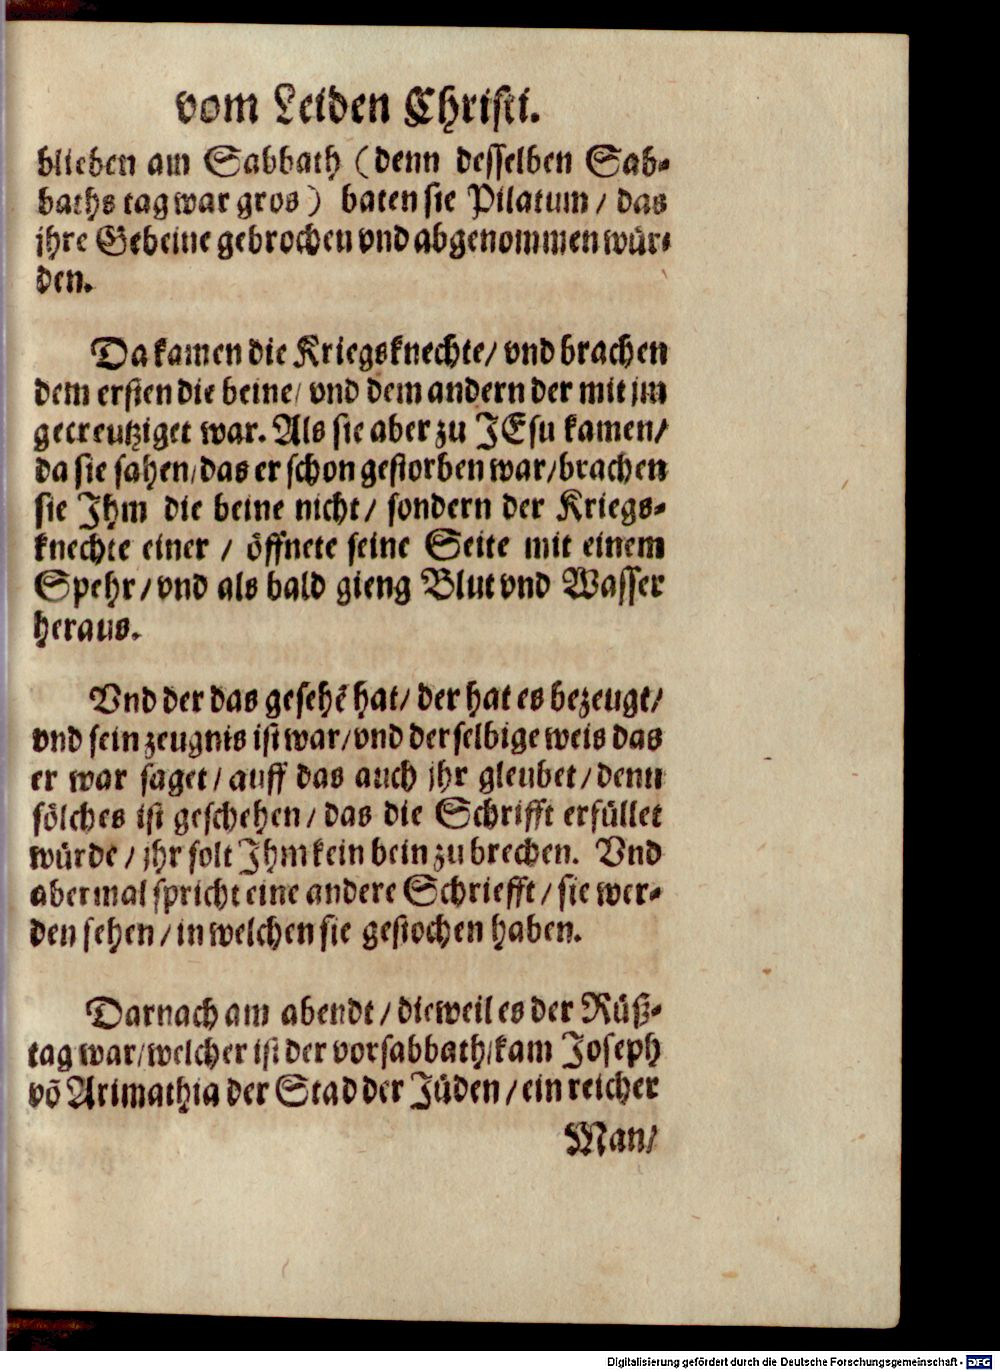 vom Leiden Christi.
blieben am Sabbath (denn desselben Sab-
baths tag war gros) baten sie Pilatum / das
jhre Gebeine gebrochen vnd abgenommen wür-
den.
Da kamen die Kriegsknechte / vnd brachen
dem ersten die beine / vnd dem andern der mit jm
gecreutziget war. Als sie aber zu JEsu kamen /
da sie sahen / das er schon gestorben war / brachen
sie Ihm die beine nicht / sondern der Kriegs-
knechte einer / öffnete seine Seite mit einem
Spehr / vnd als bald gieng Blut vnd Wasser
heraus.
Vnd der das gesehẽ hat / der hat es bezeugt /
vnd sein zeugnis ist war / vnd derselbige weis das
er war saget / auff das auch jhr gleubet / denn
sölches ist geschehen / das die Schrifft erfüllet
würde / jhr solt Ihm kein bein zu brechen. Vnd
abermal spricht eine andere Schriefft / sie wer-
den sehen / in welchen sie gestochen haben.
Darnach am abendt / dieweil es der Rüß-
tag war / welcher ist der vorsabbath / kam Joseph
võ Arimathia der Stad der Jüden / ein reicher
Man /
Digitalisierung gefördert durch die Deutsche Forschungsgemeinschaft - DFG